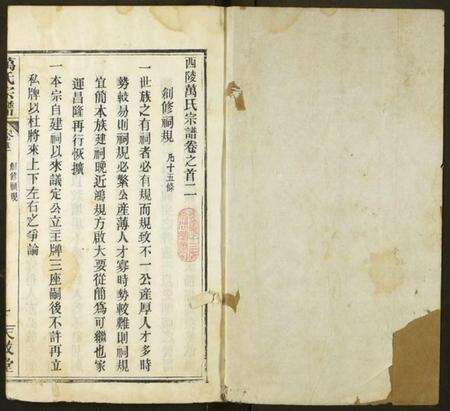 西陵萬氏宗譜卷之首二
創修祠規 凡十五條
一世族之有祠者必有規而規致不一公產厚人才多時
勢較易則祠規必繁公產薄人才寡時勢較難則祠規
宜簡本族建祠晚近鴻規方啟大要從簡為可繼也家
運昌隆再行恢擴
一本宗自建祠以來議定公立主牌三座嗣後不許再立
私牌以杜將來上下左右之爭論
萬氏宗譜
創修祠規